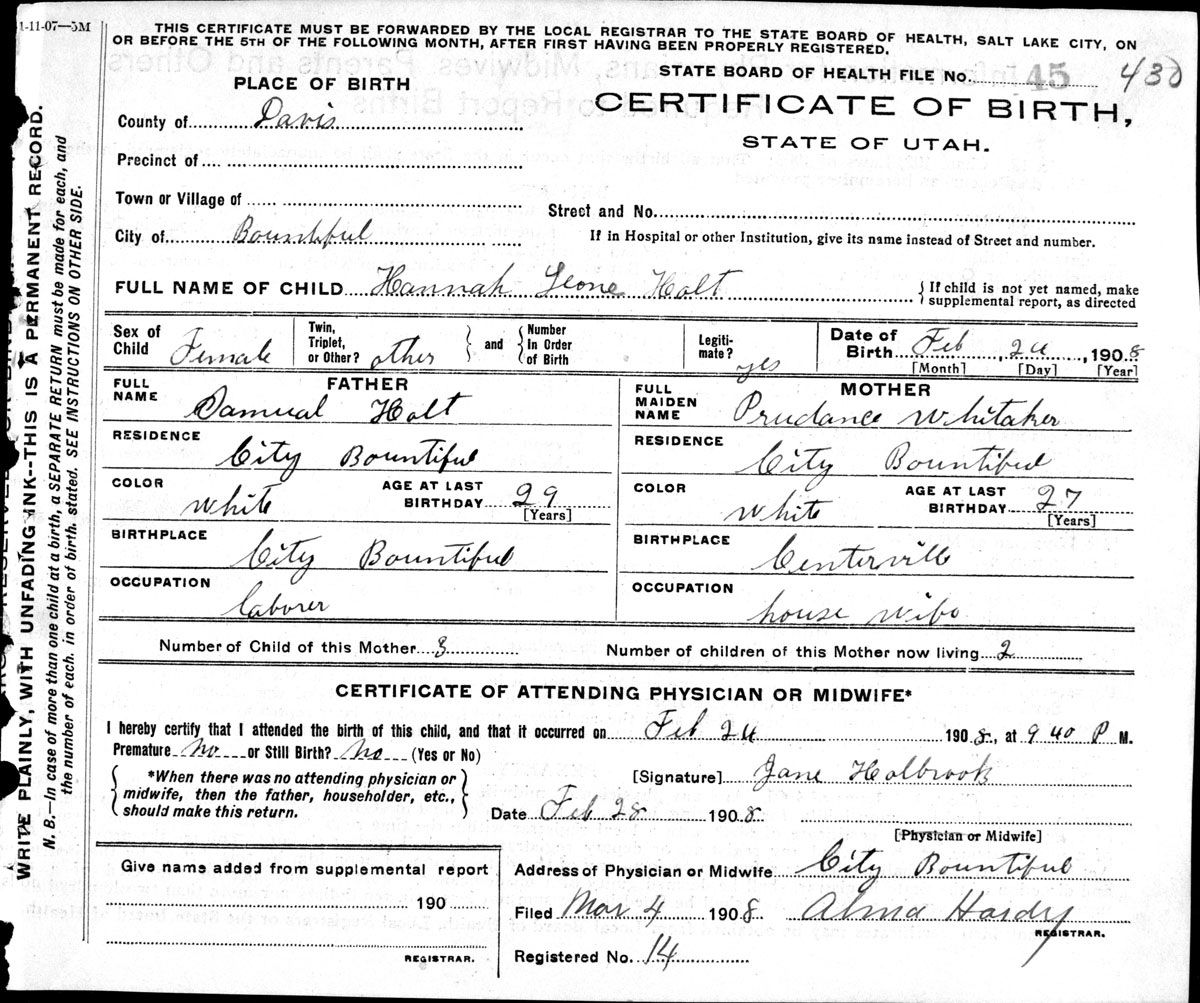 1-11-07—5M
THIS CERTIFICATE MUST BE FORWARDED BY THE LOCAL REGISTRAR TO THE STATE BOARD OF HEALTH, SALT LAKE CITY, ON
OR BEFORE THE 5TH OF THE FOLLOWING MONTH, AFTER FIRST HAVING BEEN PROPERLY REGISTERED.
STATE BOARD OF HEALTH FILE No. 45 430
CERTIFICATE OF BIRTH,
STATE OF UTAH.
PLACE OF BIRTH
County of Davis
Precinct of
Town or Village of
Street and No.
City of Bountiful
If in Hospital or other Institution, give its name instead of Street and number.
FULL NAME OF CHILD Hannah Leone Holt
{ If child is not yet named, make
supplemental report, as directed
Sex of Child Female
Twin, Triplet, or Other? other } and { Number In Order of Birth
Legiti-mate? yes
Date of Birth Feb, 24, 1908
[Month] [Day] [Year]
FATHER
FULL NAME Samual Holt
RESIDENCE City Bountiful
COLOR White AGE AT LAST BIRTHDAY 29 [Years]
BIRTHPLACE City Bountiful
OCCUPATION laborer
MOTHER
FULL MAIDEN NAME Prudance Whitaker
RESIDENCE City Bountiful
COLOR White AGE AT LAST BIRTHDAY 27 [Years]
BIRTHPLACE Centerville
OCCUPATION house wife
Number of Child of this Mother 3 Number of children of this Mother now living 2
CERTIFICATE OF ATTENDING PHYSICIAN OR MIDWIFE*
I hereby certify that I attended the birth of this child, and that it occurred on Feb 24 1908, at 9 40 P M.
Premature No or Still Birth? No (Yes or No)
{ *When there was no attending physician or
midwife, then the father, householder, etc.,
should make this return. }
[Signature] Jane Holbrook
Date Feb 28 1908
[Physician or Midwife]
Give name added from supplemental report
190
REGISTRAR.
Address of Physician or Midwife City Bountiful
Filed Mar 4 1908 Alma Hardy
REGISTRAR.
Registered No. 14
WRITE PLAINLY, WITH UNFADING INK--THIS IS A PERMANENT RECORD.
N. B.—In case of more than one child at a birth, a SEPARATE RETURN must be made for each, and
the number of each, in order of birth, stated. SEE INSTRUCTIONS ON OTHER SIDE.